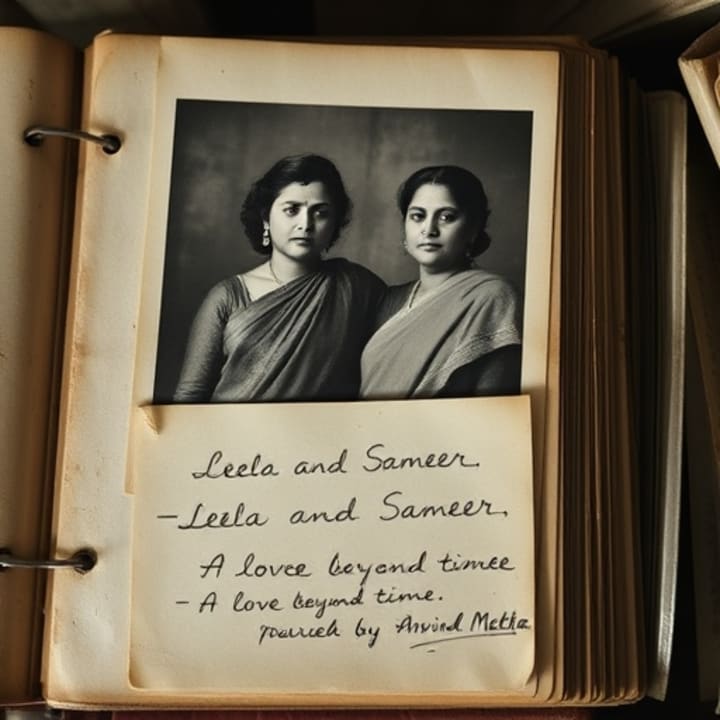 Leela and Sameer.
– Leela and Sameer.
A lovee beyond timee
– A love beyond time.
by Arvind Metha